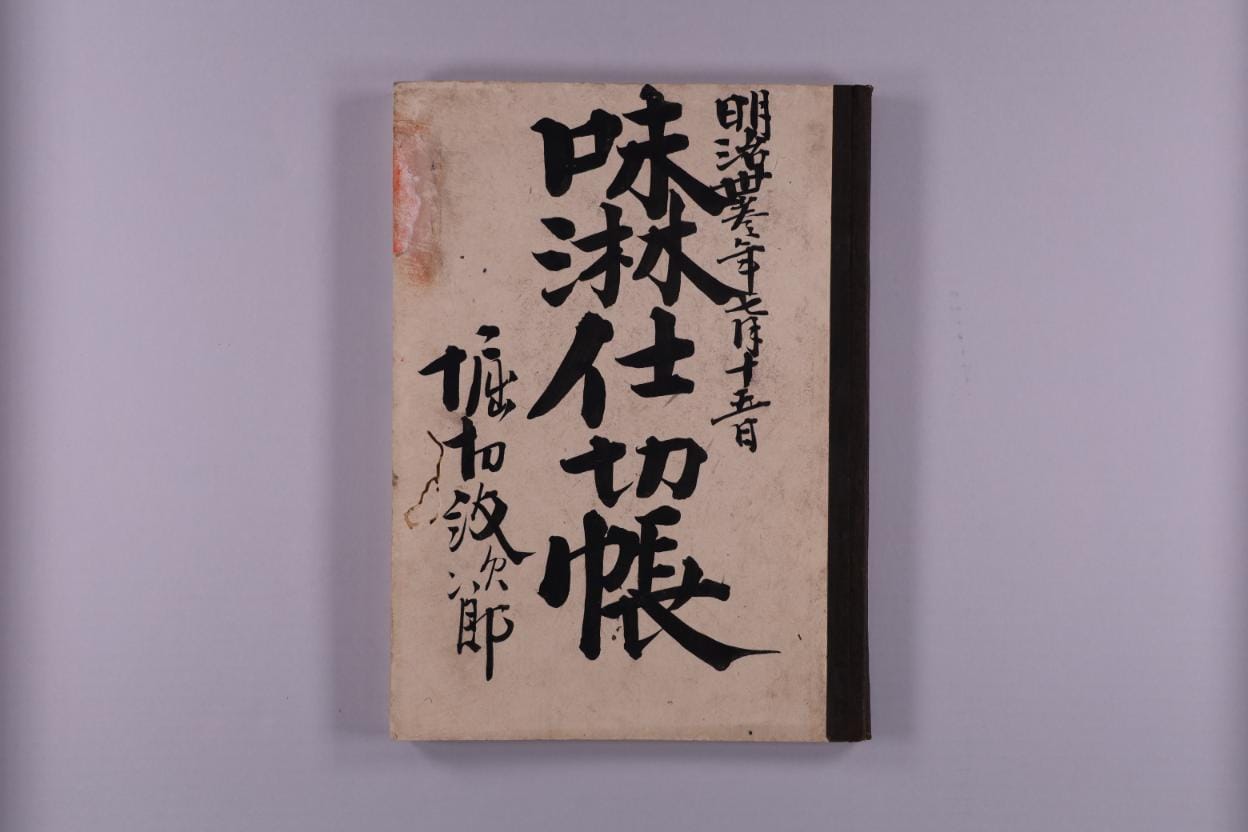 明治丗参年七月十五日
味淋仕切帳
堀切紋次郎